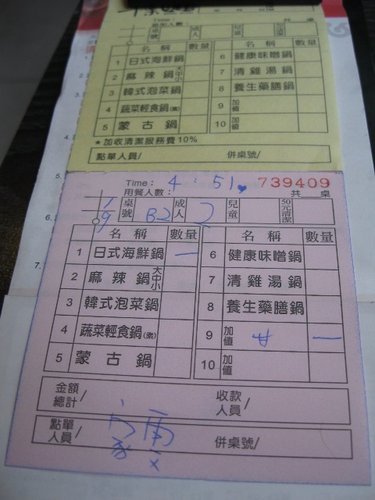 Time:
用餐人數:
共 桌
名稱 數量 名稱 數量
1 日式海鮮鍋 6 健康味噌鍋
2 麻辣鍋 大中小 7 清雞湯鍋
3 韓式泡菜鍋 8 養生藥膳鍋
4 蔬菜輕食鍋(素) 9 加值
5 蒙古鍋 10 加值
*加收清潔服務費10%
點單人員/ 併桌號/
Time: 4:51 739409
用餐人數: 共 桌
桌號 B-2 成人 2 兒童 50元清潔
名稱 數量 名稱 數量
1 日式海鮮鍋 一 6 健康味噌鍋
2 麻辣鍋 大中小 7 清雞湯鍋
3 韓式泡菜鍋 8 養生藥膳鍋
4 蔬菜輕食鍋(素) 9 加值 廿 一
5 蒙古鍋 10 加值
金額總計/ 收款人員/
點單人員/ 併桌號/